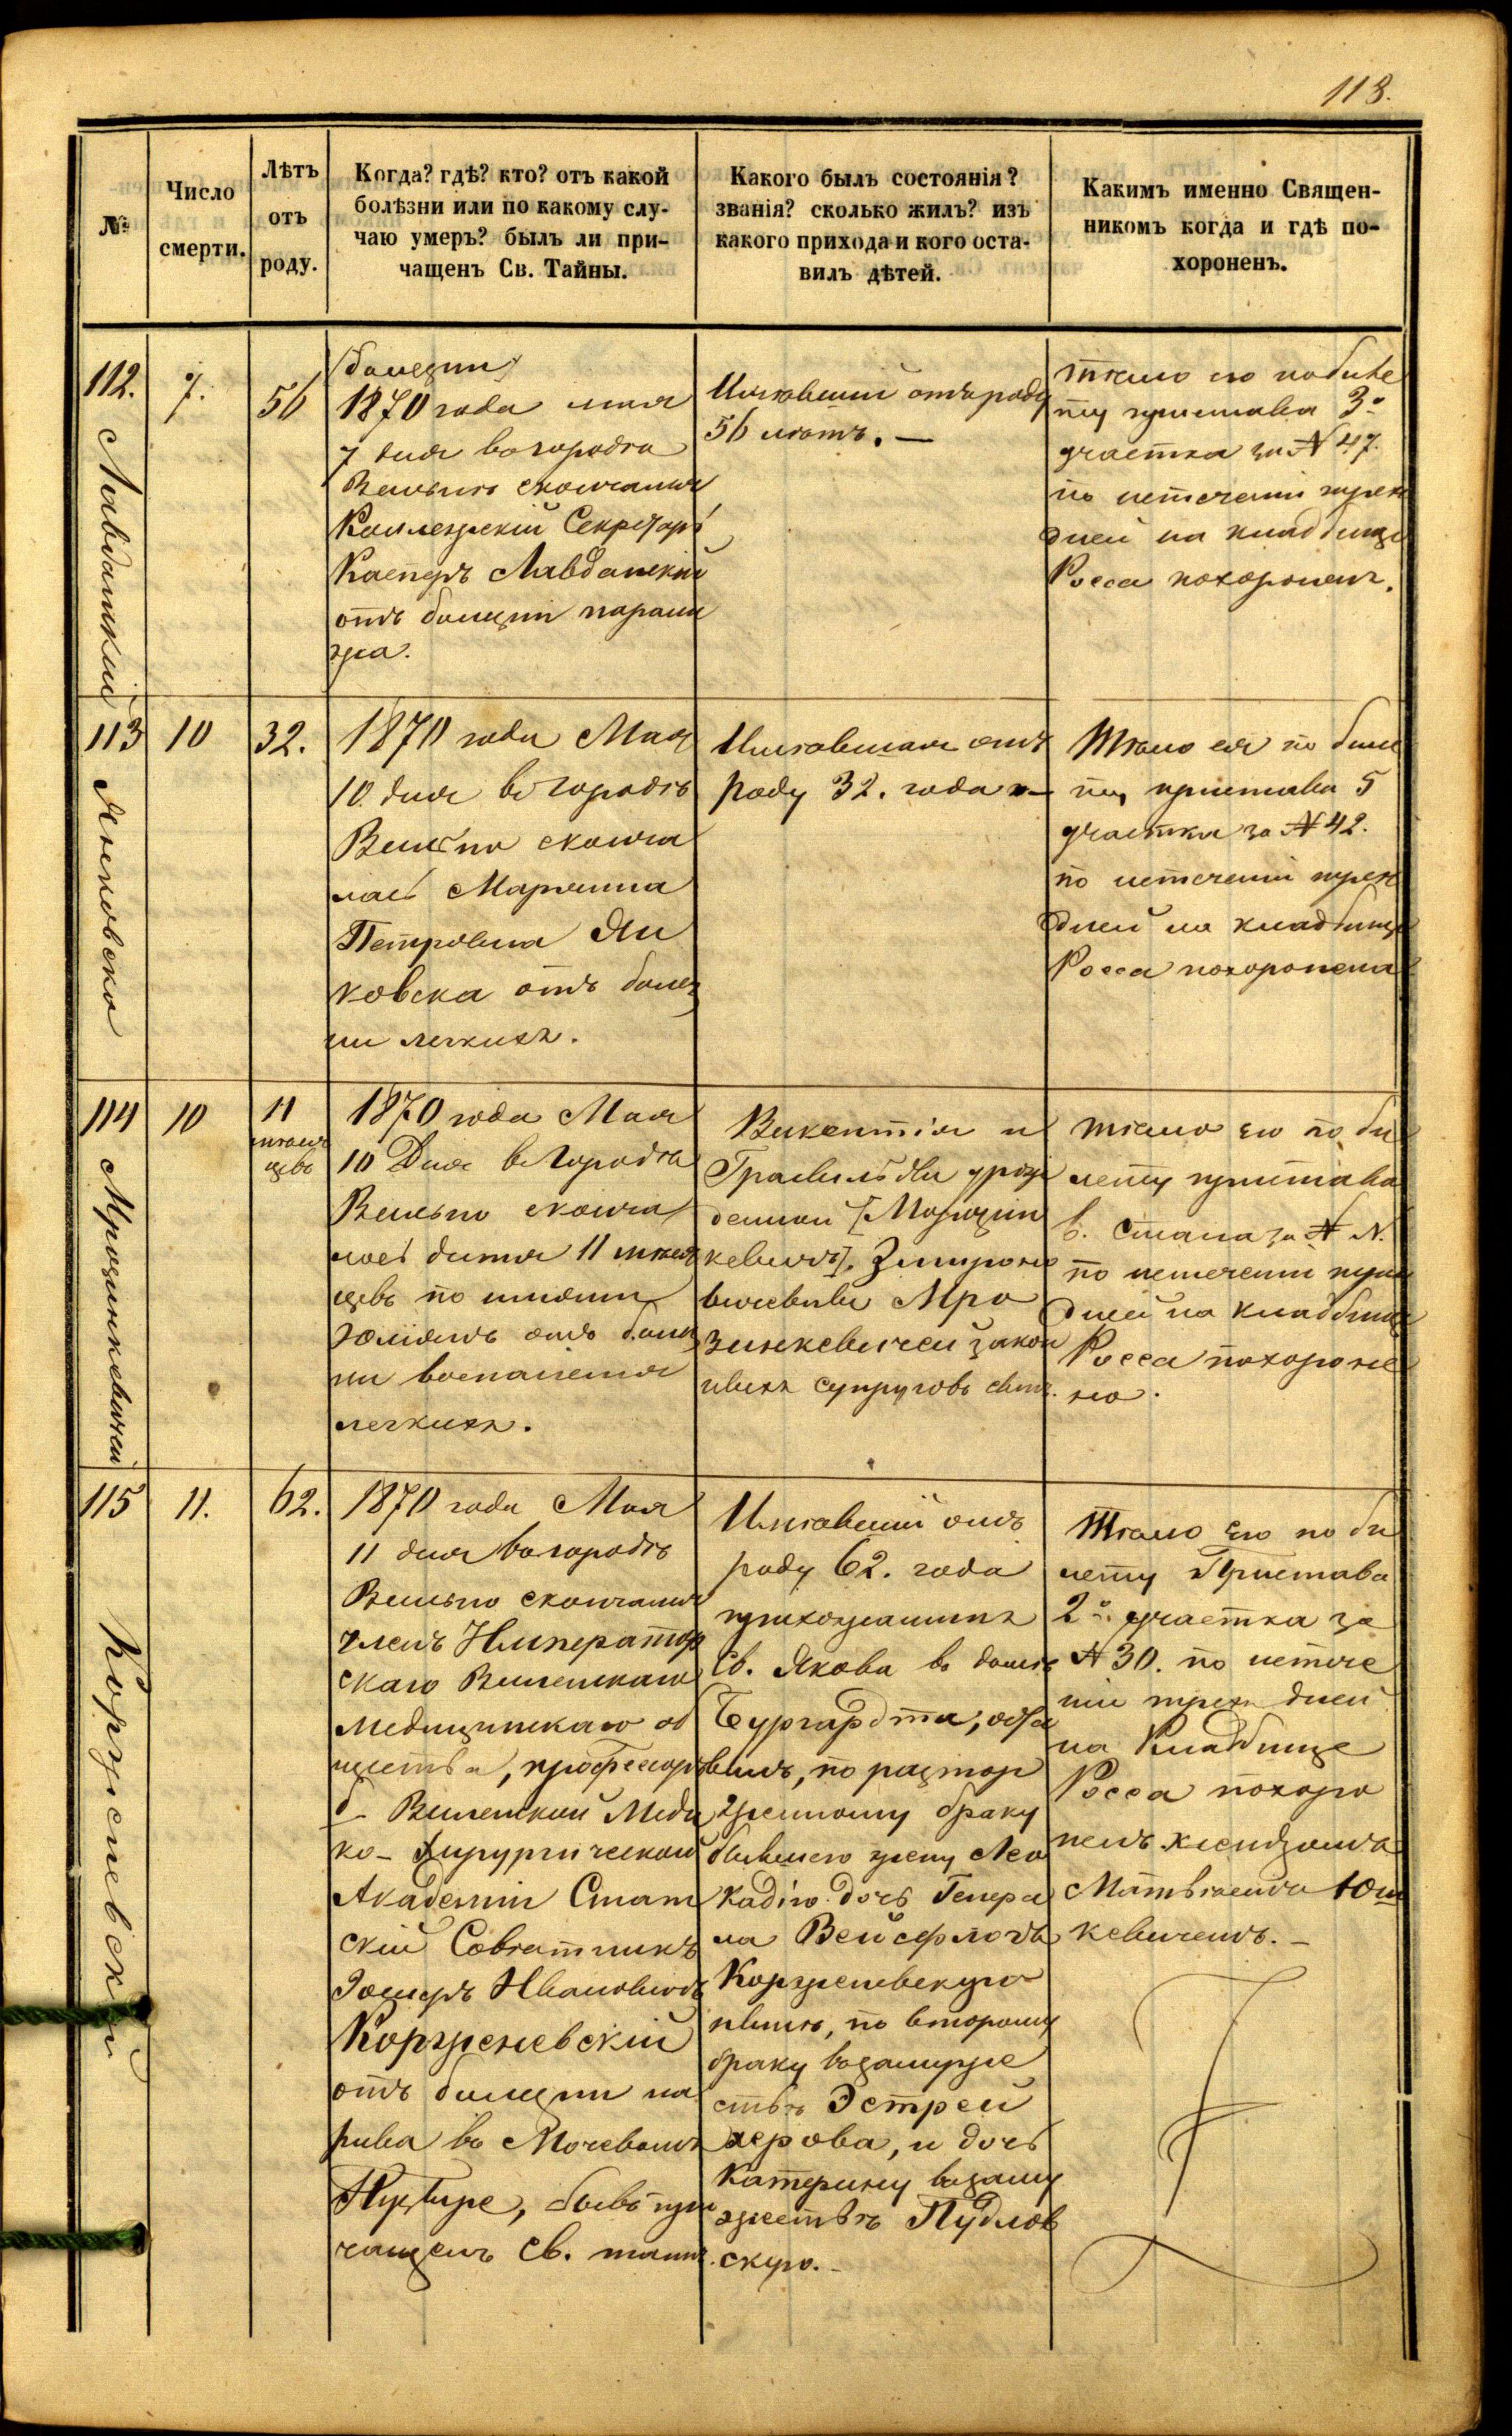 113.
№
Число
смерти.
Лѣтъ
отъ
роду.
Когда? гдѣ? кто? отъ какой
болѣзни или по какому слу-
чаю умеръ? былъ ли при-
чащенъ Св. Тайны.
Какого былъ состоянія?
званія? сколько жилъ? изъ
какого прихода и кого оста-
вилъ дѣтей.
Какимъ именно Священ-
никомъ когда и гдѣ по-
хороненъ.
112.
7.
56
1870 года мая
7 дня въ городѣ
Вильнѣ скончался
Коллежскій Секретарь
Касперъ Лявданскій
отъ болезни парали
жа.
Имѣвшій отъ роду
56 лѣтъ. —
тѣло его по биле
ту пристава 3º
участка за № 47.
по истеченіи трехъ
дней на кладбище
Росса похороненъ.
113
Янковска
10
32.
1870 года Мая
10 дня въ городѣ
Вильно сконча
лась Марянна
Петровна Ян
ковска отъ болез
ни легкихъ.
Имѣвшая отъ
роду 32. года
Тѣло ея по биле
ту пристава 5
участка за № 42.
по истеченіи трехъ
дней на кладбище
Росса похоронена
114
Мрозинкевичей
10
11
мѣся
цевъ
1870 года Мая
10 Дня въ Городѣ
Вильно сконча
лось дитя 11 мѣся
цевъ по имяни
Юліянъ отъ болез
ни воспаленія
легкихъ.
Викентія и
урож
денной
Мро
зинкевичей закон
ныхъ супруговъ сынъ.
тѣло его по би
лету пристава
6. Стана за № N.
по истеченіи трехъ
дней на кладбище
Росса похороне
но.
115
Корженевскій
11.
62.
1870 года Мая
11 дня въ городѣ
Вильно скончался
членъ Император
скаго Виленскаго
Медицинскаго об
щества, профессоръ
б. Виленской Меди
ко-Хирургической
Академіи Стат
скій Совѣтникъ
Іосифъ Ивановичъ
Корженевскій
отъ болезни на
рыва въ Мочевомъ
Пузыре, бывъ при
чащенъ Св. таинъ.
Имѣвшій отъ
роду 62. года
прихожанинъ
Св. Якова въ доме
Бургардта, оста
вилъ, по растор
женному браку
бывшего жену Лео
кадію дочь Генера
ла Вейсфлогъ
Корженевскую
ныне, по второму
браку въ замуже
ствѣ Эстрей
херова, и дочь
Катерину въ заму
жествѣ Пудлов
скую.
Тѣло его по би
лету Пристава
2º участка за
№ 30. по истече
ніи трехъ дней
на Кладбище
Росса похоро
ненъ ксендзомъ
Матвѣемъ Юш
кевичемъ. —